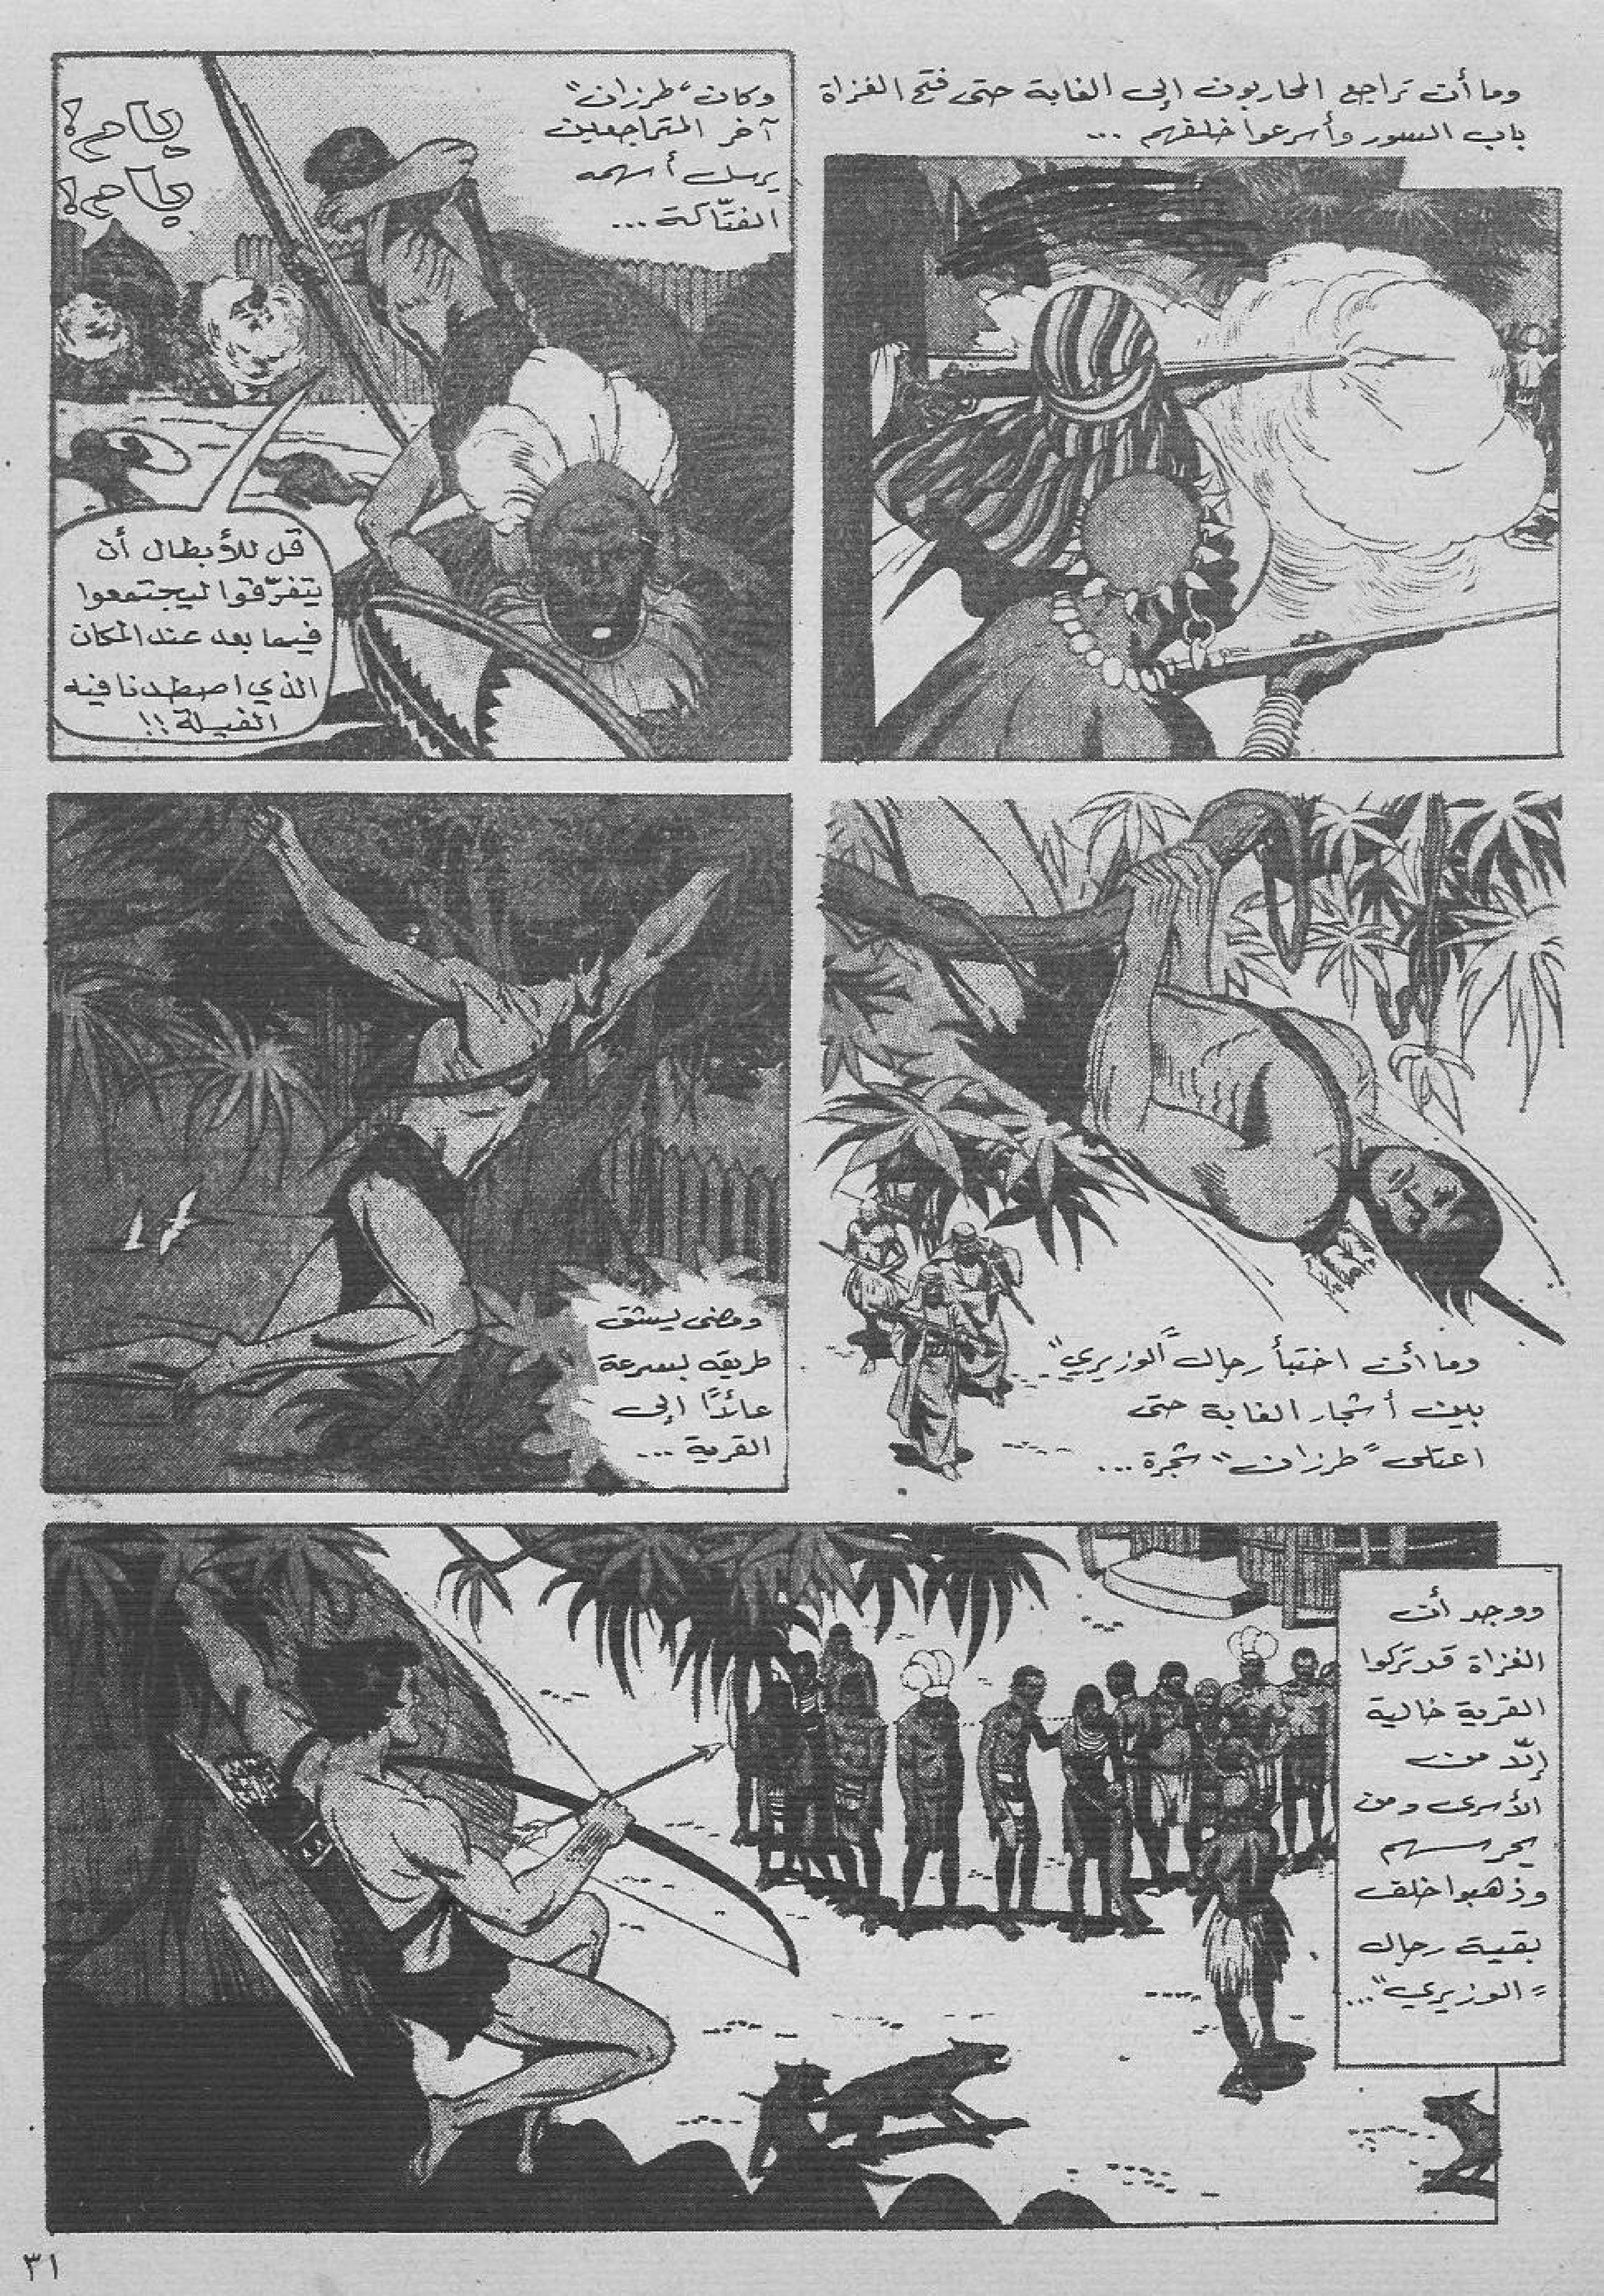 وما أن تراجع المحاربون إلى الغابة حتى فتح الغزاة
باب السور وأسرعوا خلفهم ...
وكان "طرزان"
آخر المتراجعين
يرسل أسهمه
الفتّاكة ...
بام!
بام!
قل للأبطال أن
يتفرّقوا ليجتمعوا
فيما بعد عند المكان
الذي اصطدنا فيه
الفيلة !!
وما أن اختبأ رجال "الوزيري"
بين أشجار الغابة حتى
اعتلى "طرزان" شجرة ...
ومضى يشق
طريقه بسرعة
عائدًا إلى
القرية ...
ووجد أن
الغزاة قد تركوا
القرية خالية
إلّا من
الأسرى ومن
يحرسهم
وذهبوا خلف
بقية رجال
"الوزيري" ...
٣١